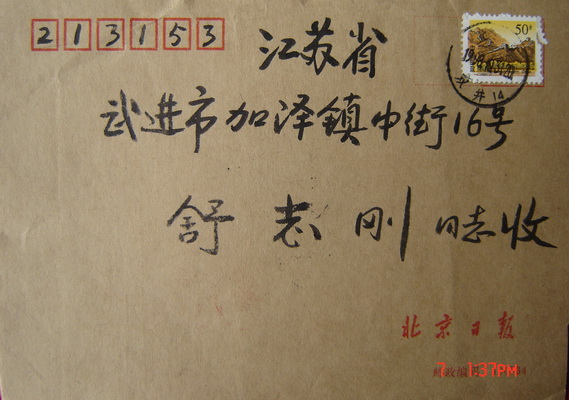 213153
50分
江苏省
武进市加泽镇中街16号
舒志刚 同志收
北京日报
邮政编
1:37PM